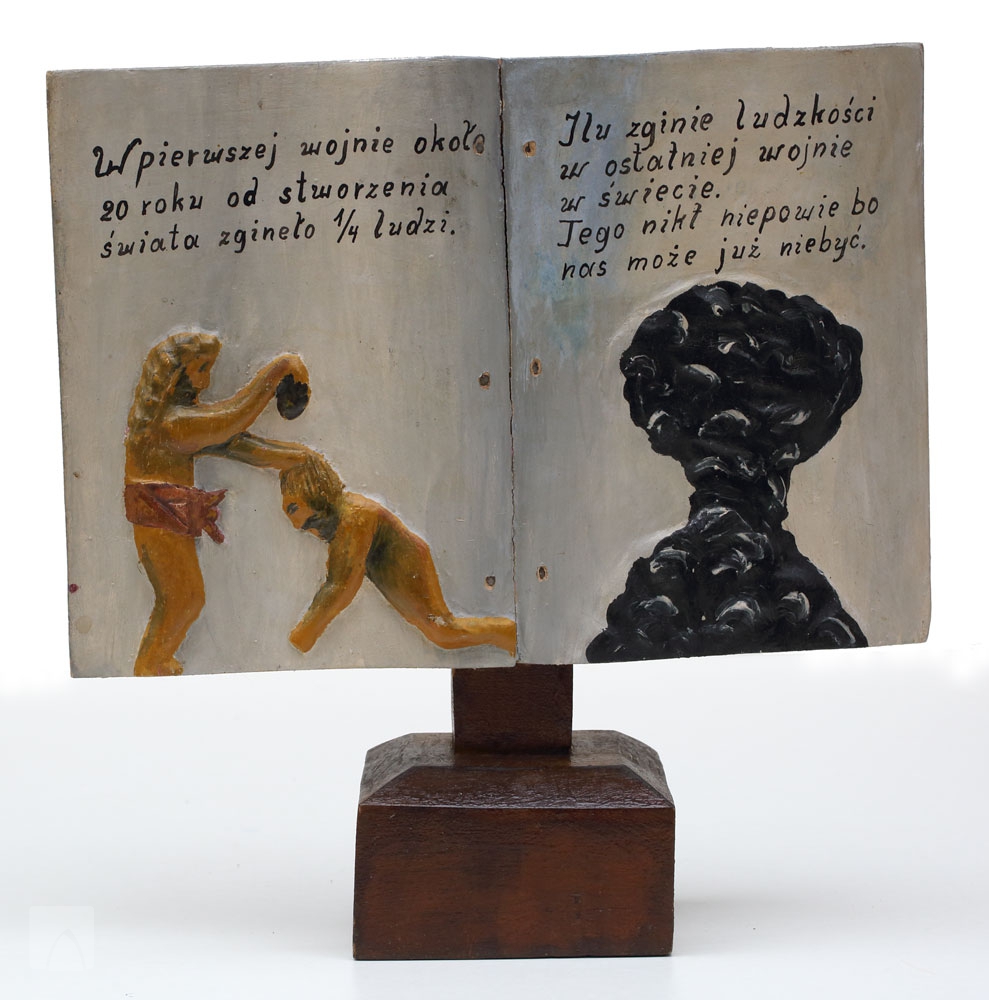 W pierwszej wojnie około
20 roku od stworzenia
świata zgineło 1/4 ludzi.
Ilu zginie ludzkości
w ostatniej wojnie
w świecie.
Tego nikt niepowie bo
nas może już niebyć.